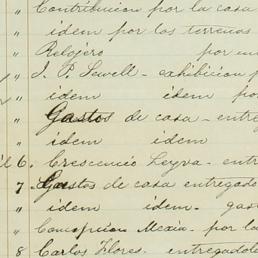 " Contribucion por la casa
" idem por los terrenos
" Relojero por un
" J. P. Sewell - exhibicion p
" idem idem po
" Gastos de casa - entre
" idem idem
6. Crescencio Leyva - entr
7. Gastos de casa entregado
" idem idem - gas
" Concepcion Mexia - por la
8 Carlos Flores. entregadole